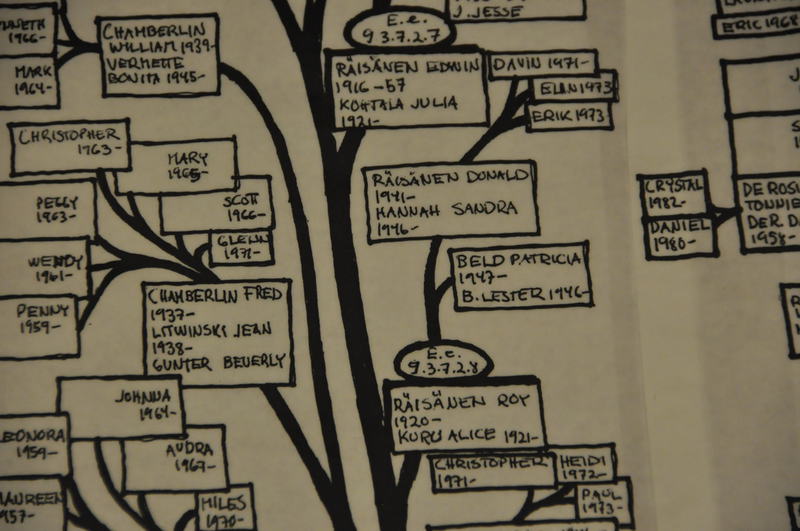 1966-
MARK
1964-
CHAMBERLIN
WILLIAM 1939-
VERMETTE
BONITA 1945-
E.e.
9.3.7.2.7
J. JESSE
RÄISÄNEN EDWIN
1916-57
KOHTALA JULIA
1921-
DAVIN 1971-
ELAN 1973
ERIK 1973
ERIC 1968
CHRISTOPHER
1963-
MARY
1965-
SCOTT
1966-
GLENN
1971-
PEGGY
1963-
WENDY
1961-
PENNY
1959-
CHAMBERLIN FRED
1937-
LITWINSKI JEAN
1938-
GUNTER BEVERLY
RÄISÄNEN DONALD
1941-
HANNAH SANDRA
1946-
BELD PATRICIA
1947-
B. LESTER 1946-
CRYSTAL
1982-
DANIEL
1980-
DE ROSI
TONNIE
DER. D
1958-
E.e.
9.3.7.2.8
RÄISÄNEN ROY
1920-
KURU ALICE 1921-
CHRISTOPHER
1971-
HEIDI
1972-
PAUL
1973-
JOHNNA
1964-
LEONORA
1959-
AUDRA
1967-
MAUREEN
1957-
MILES
1970-